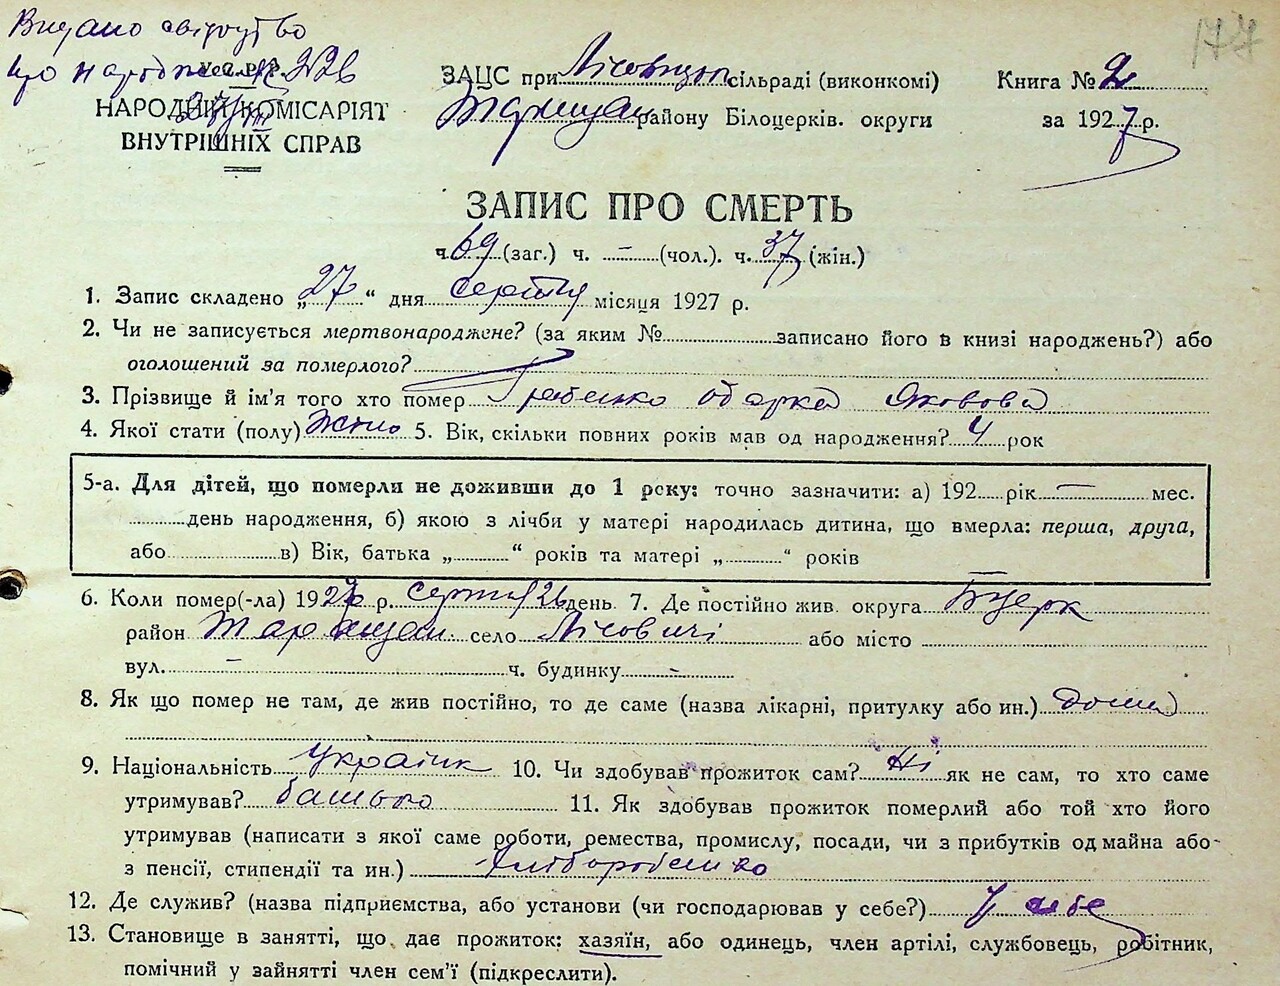 Видано свідоцтво
про народжен. № 226
177
У.С.Р.Р.
НАРОДНИЙ КОМІСАРІЯТ
ВНУТРІШНІХ СПРАВ
ЗАЦС при Лісовицьк сільраді (виконкомі)
Таращан району Білоцерків. округи
Книга № 2
за 1927 р.
ЗАПИС ПРО СМЕРТЬ
ч. 69 (заг.) ч. – (чол.). ч. 37 (жін.)
1. Запис складено „ 27 “ дня серпня місяця 1927 р.
2. Чи не записується мертвонароджене? (за яким № записано його в книзі народжень?) або
оголошений за померлого?
3. Прізвище й ім'я того хто помер Гребенько Одарка Яковова
4. Якої стати (полу) Жіно 5. Вік, скільки повних років мав од народження? 4 рок
5-а. Для дітей, що померли не доживши до 1 року: точно зазначити: а) 192 рік – мес.
день народження, б) якою з лічби у матері народилась дитина, що вмерла: перша, друга,
або в) Вік, батька „ “ років та матері „ “ років
6. Коли помер(-ла) 1927 р. серпня 26 день 7. Де постійно жив округа Бцерк
район Таращан. село Лісовичі або місто
вул. – ч. будинку –
8. Як що помер не там, де жив постійно, то де саме (назва лікарні, притулку або ин.) дома
9. Національність українк 10. Чи здобував прожиток сам? Ні як не сам, то хто саме
утримував? батько 11. Як здобував прожиток померлий або той хто його
утримував (написати з якої саме роботи, ремества, промислу, посади, чи з прибутків од майна або
з пенсії, стипендії та ин.) хліборобство
12. Де служив? (назва підприємства, або установи (чи господарював у себе?) У себе
13. Становище в занятті, що дає прожиток: хазяїн, або одинець, член артілі, службовець, робітник,
помічний у зайнятті член сем'ї (підкреслити).